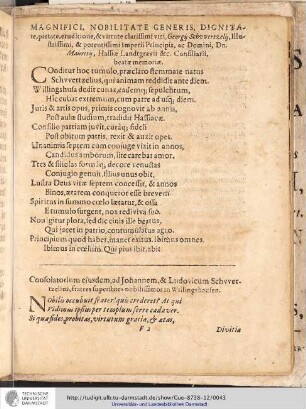 MAGNIFICI, NOBILITATE GENERIS, DIGNITA-
te, pietate, eruditione, & virtute clarissimi viri, Georgij Schvvertzelij, Illu-
strissimi, & potentissimi Imperij Principis, ac Domini, Dn.
Mauritij, Hassiæ Landtgravii &c. Consiliarii,
beatæ memoriæ.
COnditur hoc tumulo, præclaro stemmate natus
Schvvertzelius, qui animam reddidit ante diem.
Willingshusa dedit cunas, eademq; sepulchrum,
Hic cubat extremum, cum patre ad usq; diem.
Juris & artis opus, primis cognovit ab annis,
Post aulæ studium, tradidit Hassiacæ.
Consilio patriam juvit, curâq; fideli
Post obitum patris, rexit & auxit opes.
Unanimis septem cum conjuge vixit in annos,
Candidus amborum, sine carebat amor.
Tres & singlas formâq; decore venustas
Conjugio genuit, illius unus obit.
Lustra Deus vitæ septem concessit, & annos
Binos, ætatem conqueror esse brevem.
Spiritus in summo cœlo lætatur, & ossa
E tumulo surgent, nos rediviva suo.
Non igitur plora, sed dic cinis ille beatus,
Qui jacet in patrio, contumulatus agro.
Principium quod habet, manet exitus. Ibimus omnes.
Ibimus in cœlum. Qui pius ibit, abit.
Consolatorium ejusdem, ad Johannem, & Ludovicum Schvver-
tzelios, fratres superstites nobilissimos in Willingshausen.
NObilis occubuit frater! quis crederet? At qui
Vidimus ipsum per templum ferre cadaver.
Si quas fides, probitas, virtutum gratia, & ætas,
F 2 Divitia
TECHNISCHE
UNIVERSITÄT
DARMSTADT
http://tudigit.ulb.tu-darmstadt.de/show/Gue-8738-12/0043
Universitäts- und Landesbibliothek Darmstadt